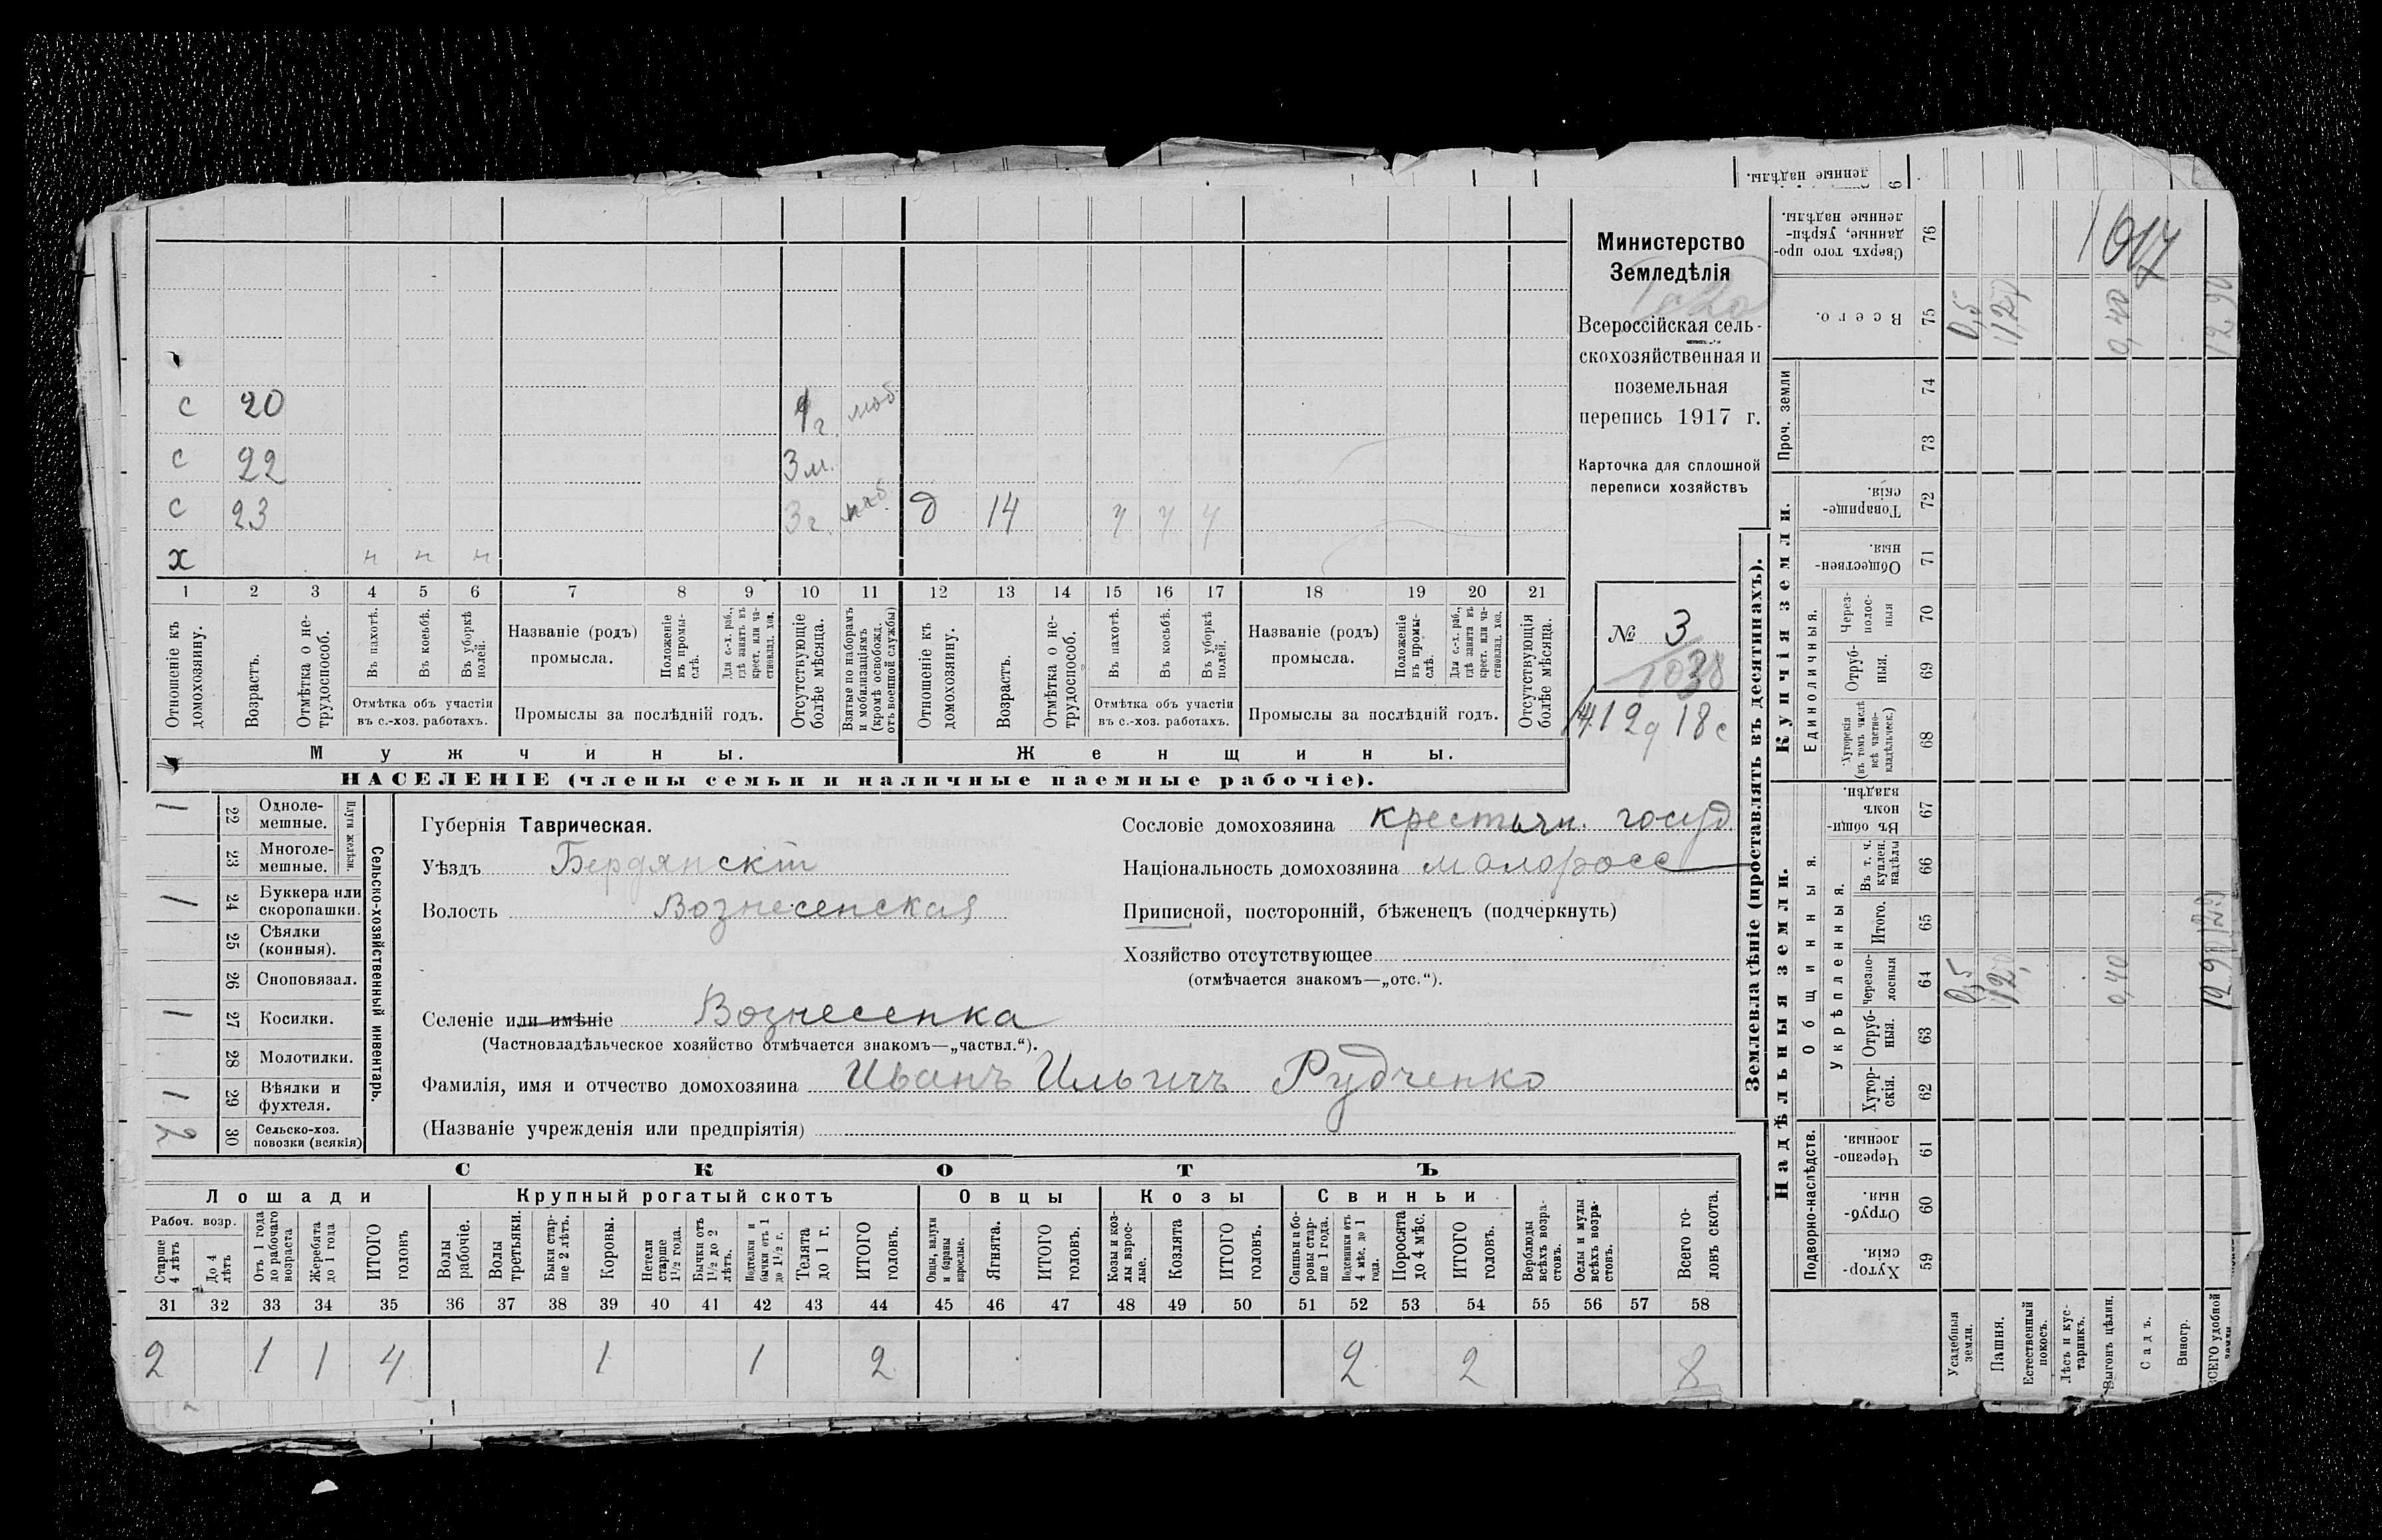 Министерство
Земледѣлія
Всероссійская сель-
скохозяйственная и
поземельная
перепись 1917 г.
Карточка для сплошной
переписи хозяйствъ
№ 3
1038
с 20 1 г. моб
с 22 3 м.
с 23 3 г. моб. д 14 ч ч ч
х ч ч ч
1 2 3 4 5 6 7 8 9 10 11 12 13 14 15 16 17 18 19 20 21
Отношеніе къ домохозяину.
Возрастъ.
Отмѣтка о не-трудоспособ.
Въ пахотѣ.
Въ косьбѣ.
Въ уборкѣ полей.
Отмѣтка объ участіи въ с.-хоз. работахъ.
Названіе (родъ) промысла.
Положеніе въ промы-слѣ.
Для с.-х. раб., гдѣ занятъ въ крест. или ча-стновлад. хоз.
Промыслы за послѣдній годъ.
Отсутствующіе болѣе мѣсяца.
Взятые по наборамъ и мобилизаціямъ (кромѣ освобожд. отъ военной службы)
Отношеніе къ домохозяину.
Возрастъ.
Отмѣтка о не-трудоспособ.
Въ пахотѣ.
Въ косьбѣ.
Въ уборкѣ полей.
Отмѣтка объ участіи въ с.-хоз. работахъ.
Названіе (родъ) промысла.
Положеніе въ промы-слѣ.
Для с.-х. раб., гдѣ занята въ крест. или ча-стновлад. хоз.
Промыслы за послѣдній годъ.
Отсутствующія болѣе мѣсяца.
Мужчины. Женщины.
НАСЕЛЕНІЕ (члены семьи и наличные наемные рабочіе).
12 д 18 с
Сельско-хозяйственный инвентарь.
Плуги желѣзн.
1 22 Одноле-мешные.
23 Многоле-мешные.
1 24 Буккера или скоропашки.
25 Сѣялки (конныя).
26 Сноповязал.
1 27 Косилки.
28 Молотилки.
1 29 Вѣялки и фухтеля.
2 30 Сельско-хоз. повозки (всякія)
Губернія Таврическая.
Уѣздъ Бердянскій
Волость Вознесенская
Селеніе или имѣніе Вознесенка
(Частновладѣльческое хозяйство отмѣчается знакомъ—„частвл.“).
Фамилія, имя и отчество домохозяина Иванъ Ильичъ Рудченко
(Названіе учрежденія или предпріятія)
Сословіе домохозяина крестьян. госуд.
Національность домохозяина малоросс
Приписной, посторонній, бѣженецъ (подчеркнуть)
Хозяйство отсутствующее
(отмѣчается знакомъ—„отс.“).
СКОТЪ
Лошади Крупный рогатый скотъ Овцы Козы Свиньи
Рабоч. возр.
Старше 4 лѣтъ
До 4 лѣтъ
Отъ 1 года до рабочаго возраста
Жеребята до 1 года
ИТОГО головъ
Волы рабочіе.
Волы третьяки.
Быки стар-ше 2 лѣтъ.
Коровы.
Нетели старше 1 1/2 года.
Бычки отъ 1 1/2 до 2 лѣтъ.
Подтелки и бычки отъ 1 до 1 1/2 г.
Телята до 1 г.
ИТОГО головъ.
Овцы, валухи и бараны взрослые.
Ягнята.
ИТОГО головъ.
Козы и коз-лы взрос-лые.
Козлята
ИТОГО головъ.
Свиньи и бо-ровы стар-ше 1 года.
Подсвинки отъ 4 мѣс. до 1 года.
Поросята до 4 мѣс.
ИТОГО головъ.
Верблюды всѣхъ возра-стовъ.
Ослы и мулы всѣхъ возра-стовъ.
Всего го-ловъ скота.
31 32 33 34 35 36 37 38 39 40 41 42 43 44 45 46 47 48 49 50 51 52 53 54 55 56 57 58
2 1 1 4 1 1 2 2 2 8
Землевладѣніе (проставлять въ десятинахъ).
Надѣльныя земли. Купчія земли.
Подворно-наслѣдств. Общинныя. Единоличныя. Проч. земли
Укрѣпленныя.
Хутор-скія. 59
Отруб-ныя. 60
Черезпо-лосныя. 61
Хутор-скія. 62
Отруб-ныя. 63
Черезпо-лосныя 64
Итого. 65
Въ т. ч. куплен. надѣлы 66
Въ общи-номъ владѣн. 67
Хуторскія (въ томъ числѣ всѣ частно-владѣльческ.) 68
Отруб-ныя. 69
Через-полос-ныя 70
Обществен-ныя. 71
Товарище-скія. 72
73
74
Всего. 75
Сверхъ того про-данные, укрѣп-ленные надѣлы. 76
ленные надѣлы.
Усадебныя земли. 0,5 0,5
Пашня. 12, 12,
Естественный покосъ.
Лѣсъ и кус-тарникъ.
Выгонъ цѣлин. 0,40 0,40
Садъ.
Виногр.
ВСЕГО удобной земли 12,90 12,90
1917